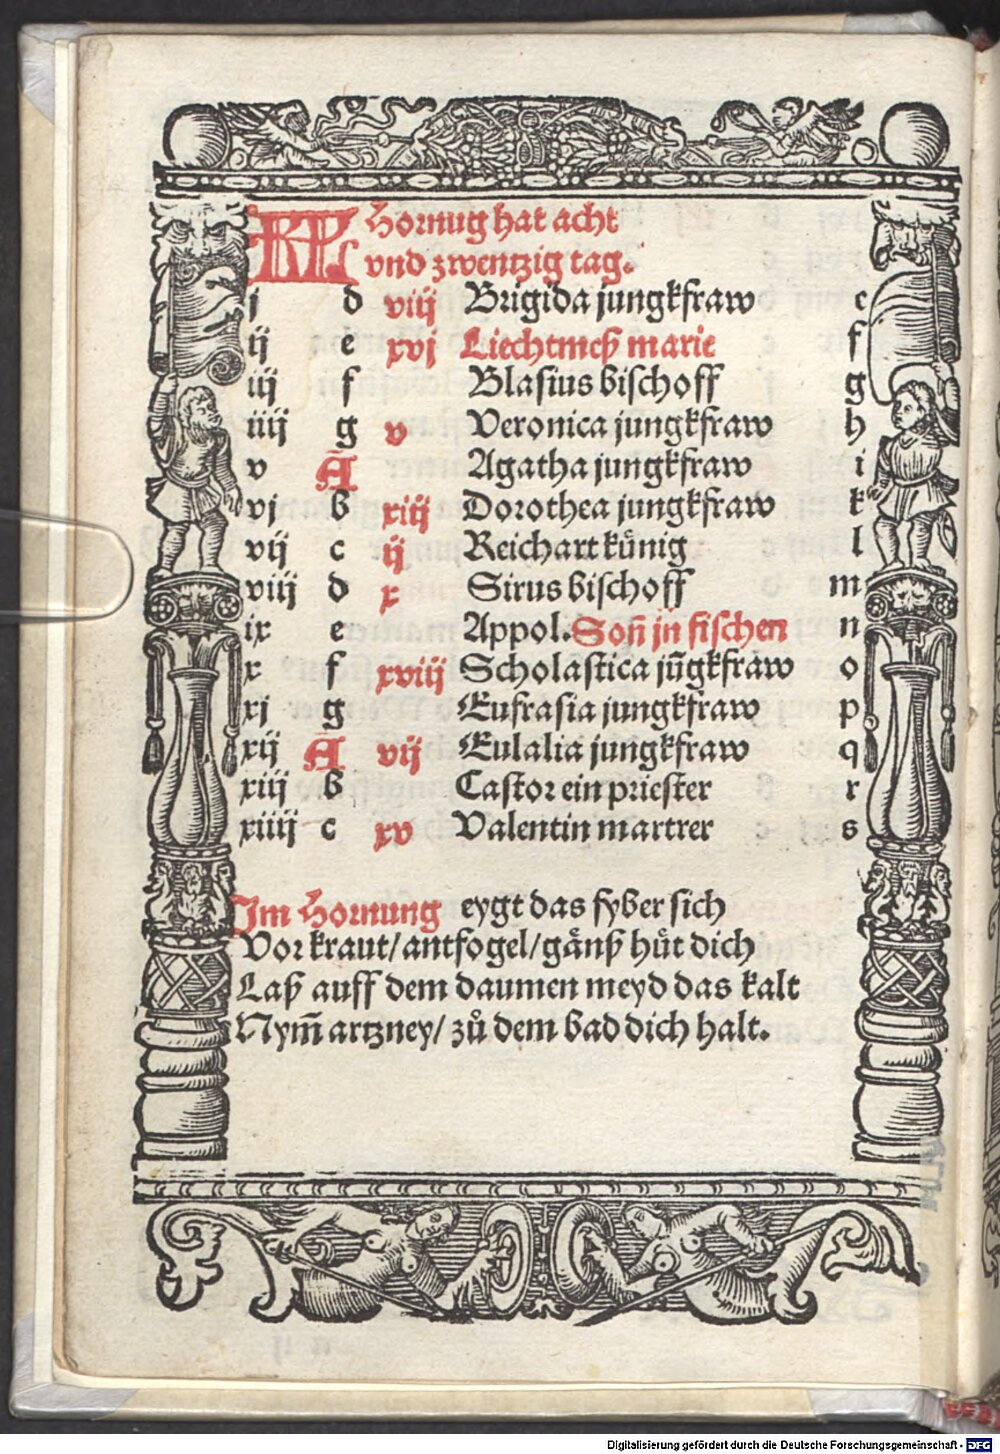 KL Hornug hat acht
vnd zwentzig tag.
j d viij Brigida jungkfraw e
ij e xvj Liechtmeß marie f
iij f Blasius bischoff g
iiij g v Veronica jungkfraw h
v A Agatha jungkfraw i
vj b xiij Dorothea jungkfraw k
vij c ij Reichart künig l
viij d x Sirus bischoff m
ix e Appol. Soñ jn fischen n
x f xviij Scholastica jũgkfraw o
xj g Eufrasia jungkfraw p
xij A vij Eulalia jungkfraw q
xiij b Castor ein priester r
xiiij c xv Valentin martrer s
Im Hornung eygt das fyber sich
Vor kraut/ antfogel/ gänß hüt dich
Laß auff dem daumen meyd das kalt
Nym̃ artzney/ zů dem bad dich halt.
Digitalisierung gefördert durch die Deutsche Forschungsgemeinschaft - DFG